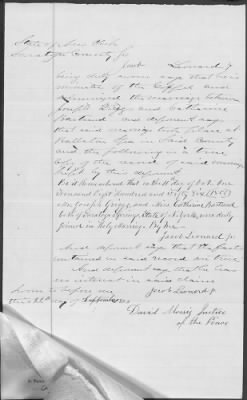 State of New York
Saratoga County ss
Jacob Leonard Jr
being duly sworn says that he is a
minister of the Gospel and
solemnized the marriage between
Joseph Griggs and Catharine
and deponent says
that said marriage took place at
Ballston Spa in said County
and the following is a true
copy of the record of said marriage
kept by this deponent
Be it Remembered that on this 1st day of Oct. One
thousand Eight Hundred and Fifty
Mr Joseph Griggs and Miss Catharine
both of Saratoga Springs State of N. York, were duly
joined in Holy Marriage By Me
Jacob Leonard Jr
And deponent says that the facts
contained in said record are true
And deponent says that he has
no interest in said claim
Sworn to before me Jacob Leonard Jr
this 22d day of September
David Morris Justice
of the Peace